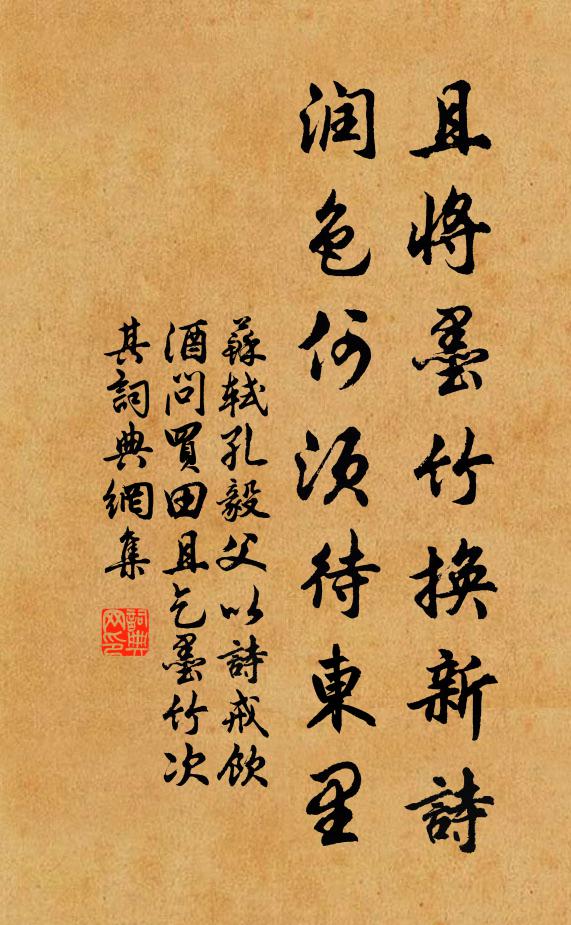 且將墨竹換新詩
润色何须待東里
蘇軾孔毅父以詩戒飲
酒問買田且乞墨竹次
其詞典網集
詞典網印